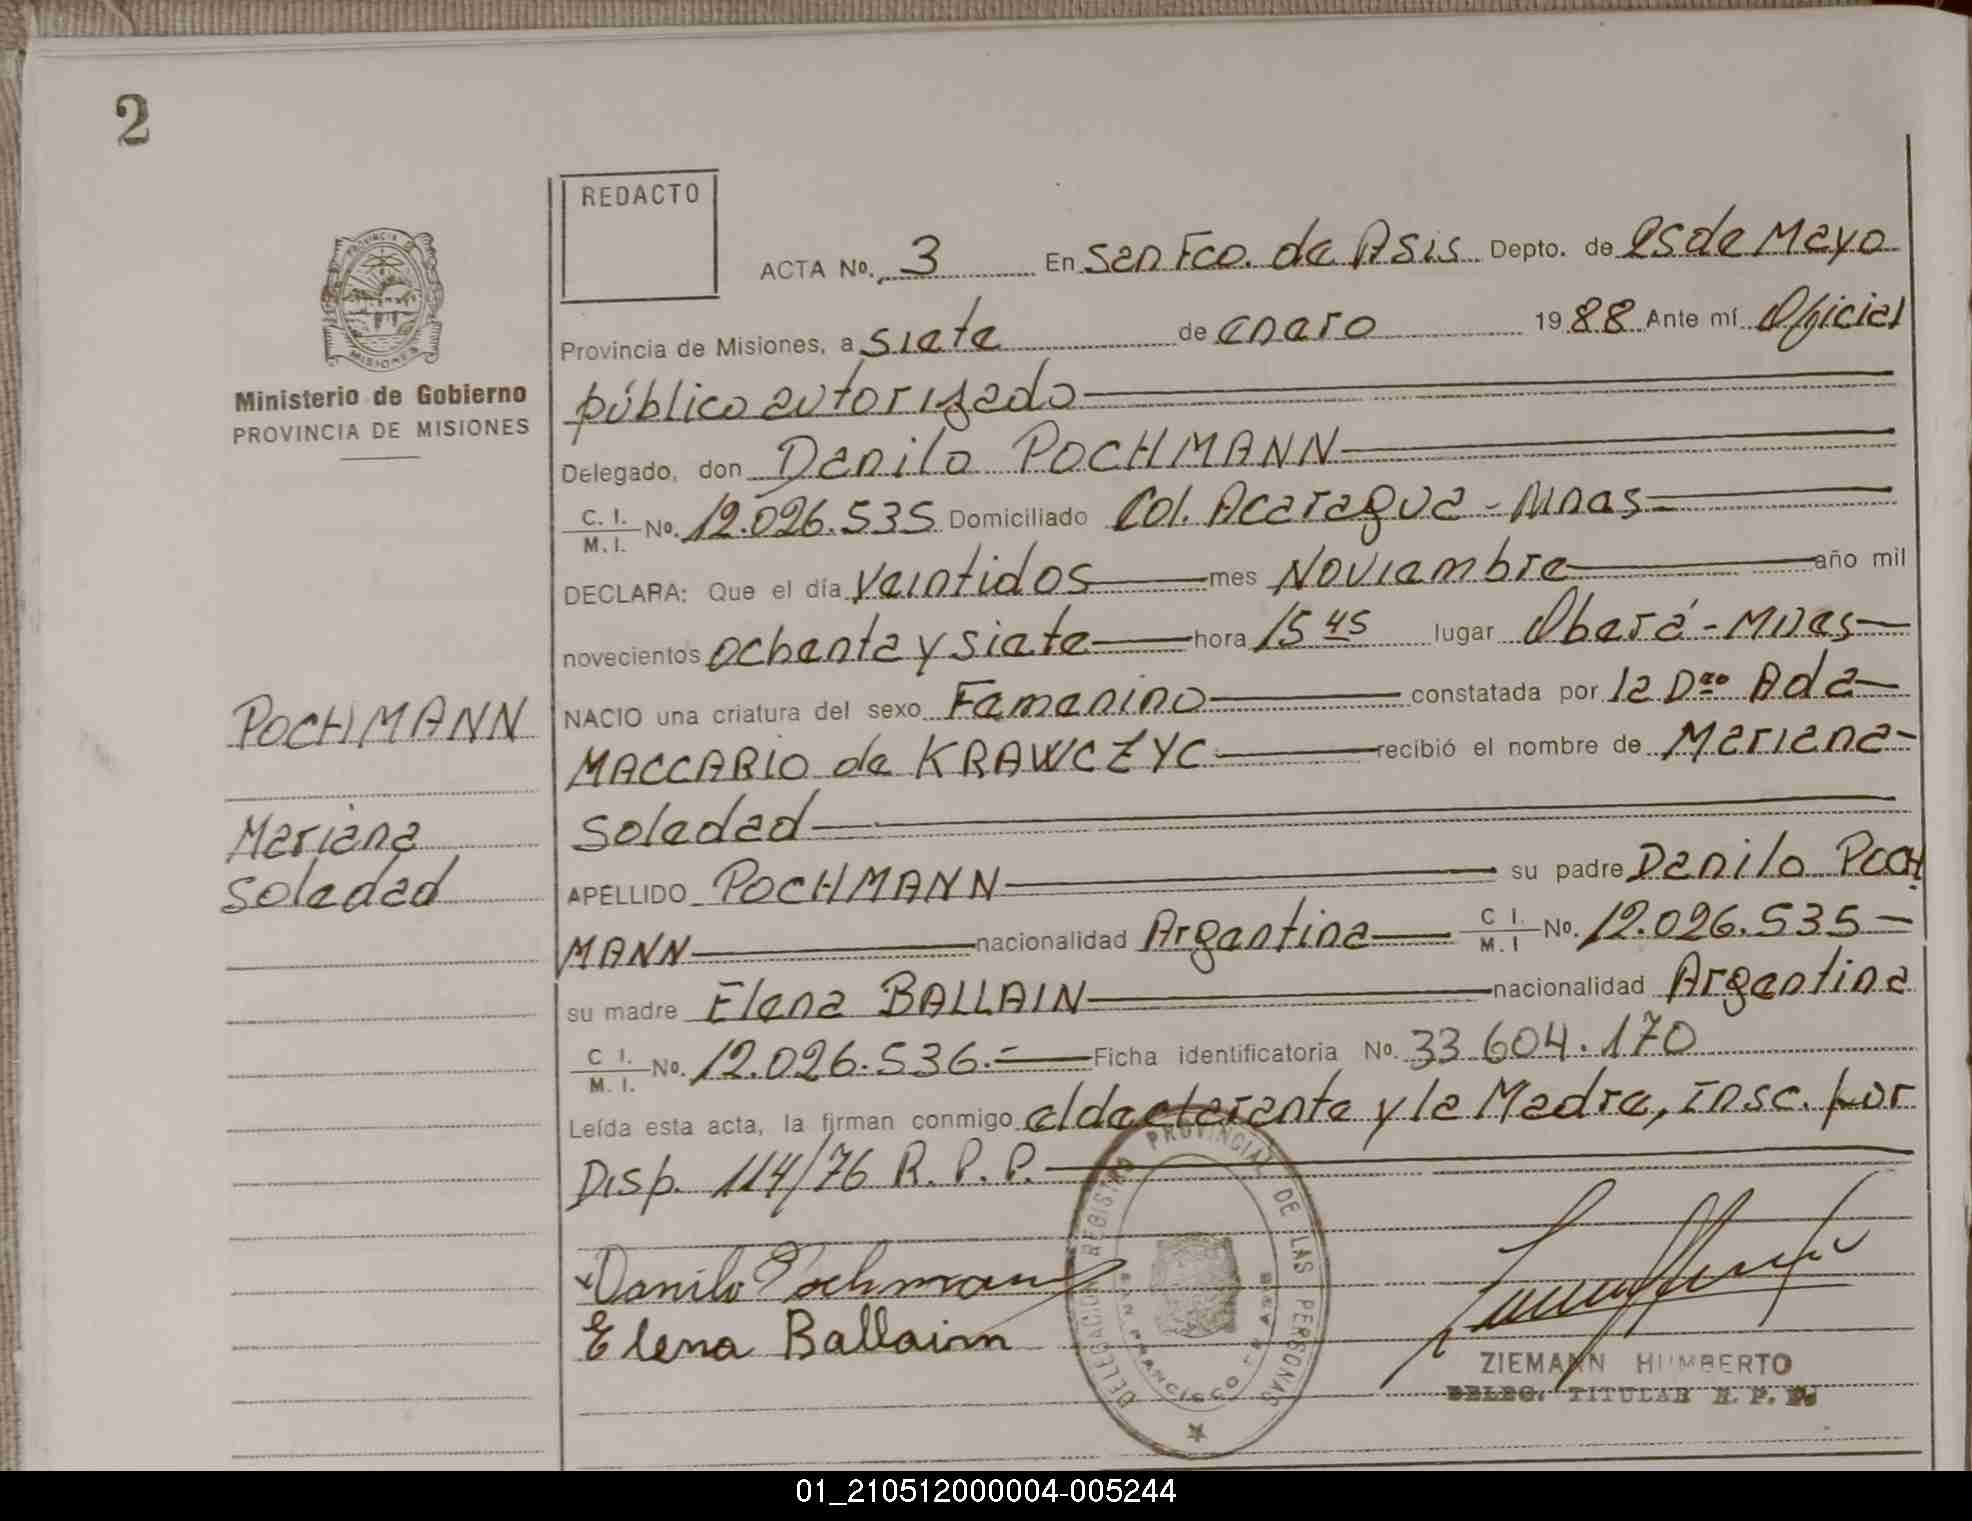 2
REDACTO
PROVINCIA DE
MISIONES
Ministerio de Gobierno
PROVINCIA DE MISIONES
ACTA No. 3 En San Fco. de Asis Depto. de 25 de Mayo
Provincia de Misiones, a siete de enero 1988 Ante mí Oficial
público autorizado
Delegado, don Danilo POCHMANN
C. I. / M. I. No. 12.026.535 Domiciliado Col. Acaragua - Mnes
DECLARA: Que el día Veintidos mes Noviembre año mil
novecientos ochenta y siete hora 15 45 lugar Oberá - Mnes
NACIO una criatura del sexo Femenino constatada por la Dra Ada
MACCARIO de KRAWCZYC recibió el nombre de Mariana
Soledad
APELLIDO POCHMANN su padre Danilo POCH
MANN nacionalidad Argentina C I. / M. I No. 12.026.535
su madre Elena BALLAIN nacionalidad Argentina
C I. / M. I. No. 12.026.536.= Ficha identificatoria No. 33 604.170
Leída esta acta, la firman conmigo el declarante y la Madre, Insc. por
Disp. 114/76 R. P. P.
POCHMANN
Mariana
Soledad
Danilo Pochmann
Elena Ballaim
DELEGACION REGISTRO PROVINCIAL DE LAS PERSONAS
SAN FRANCISCO DE ASIS
ZIEMANN HUMBERTO
DELEG. TITULAR R. P. P.
01_210512000004-005244